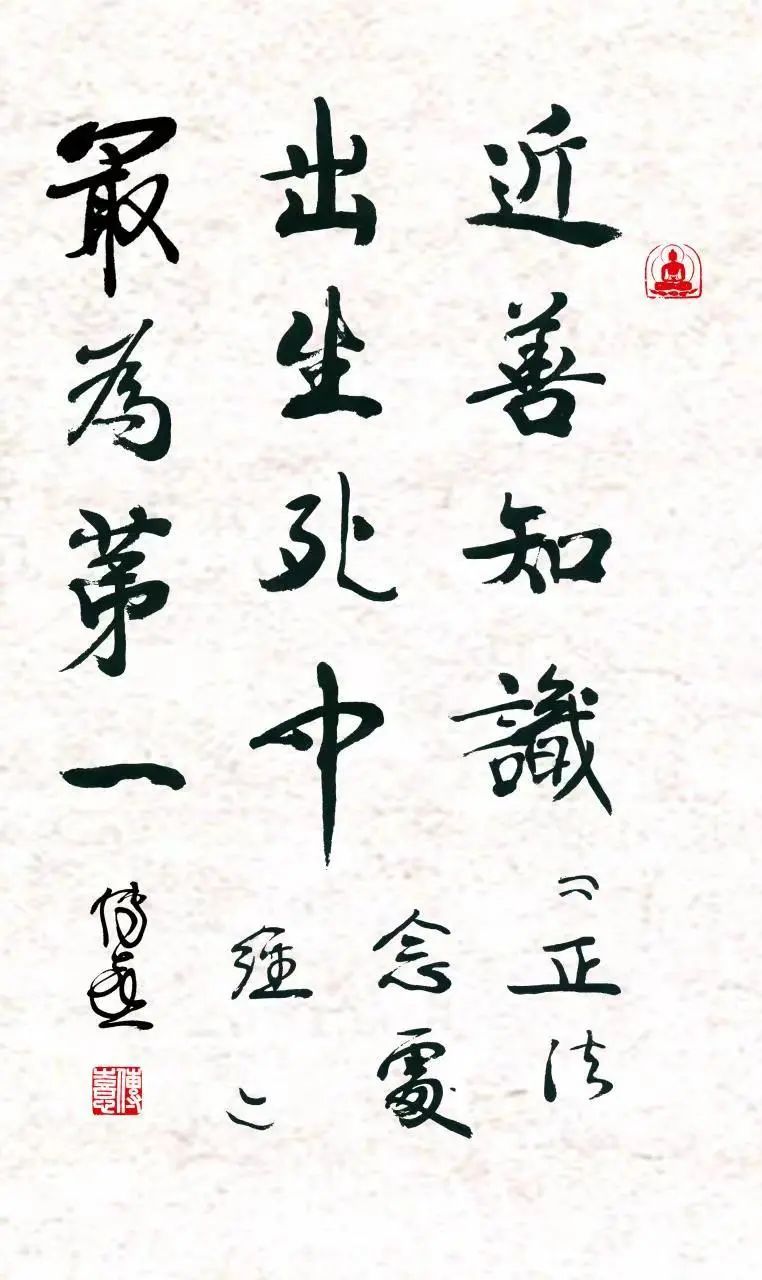 近善知識
出生死中
最為第一
（正法
念處
經）
傳喜
傳喜